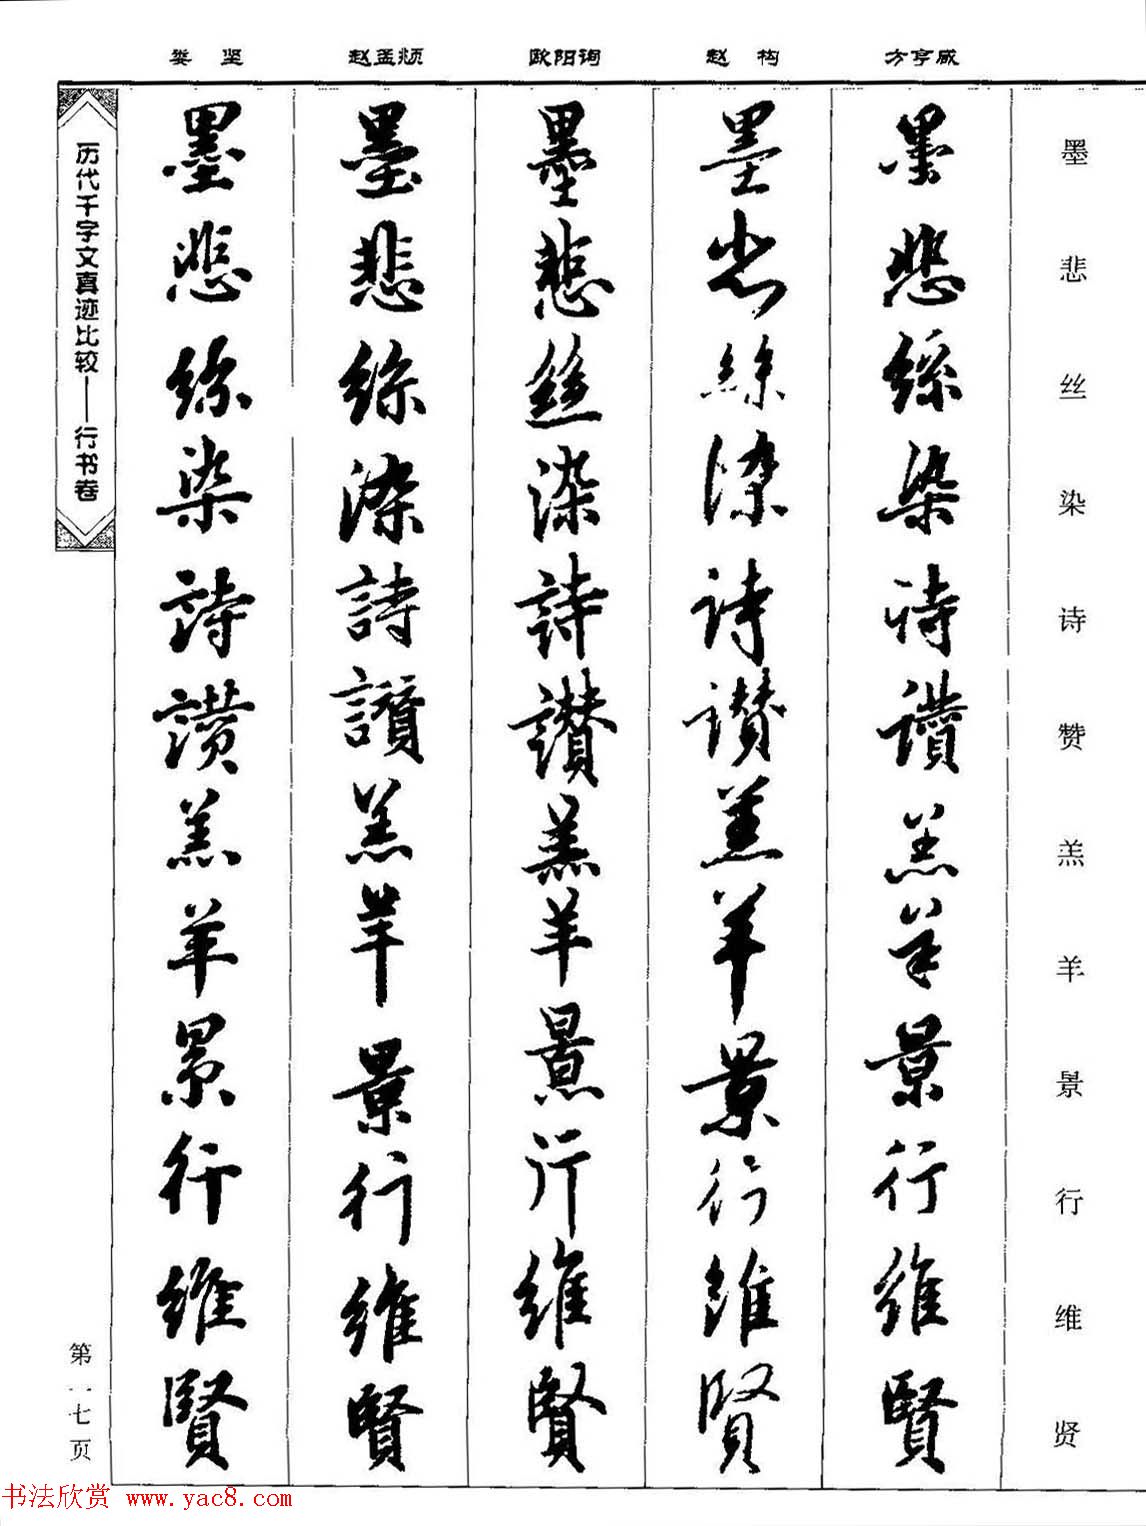 娄 坚 赵孟頫 欧阳询 赵 构 方亨咸
墨悲丝染诗赞羔羊景行维贤
墨悲絲染詩讚羔羊景行維賢
墨悲絲染詩讚羔羊景行維賢
墨悲絲染詩讚羔羊景行維賢
墨悲絲染詩讚羔羊景行維賢
墨悲絲染詩讚羔羊景行維賢
历代千字文真迹比较——行书卷
第一七页
书法欣赏 www.yac8.com